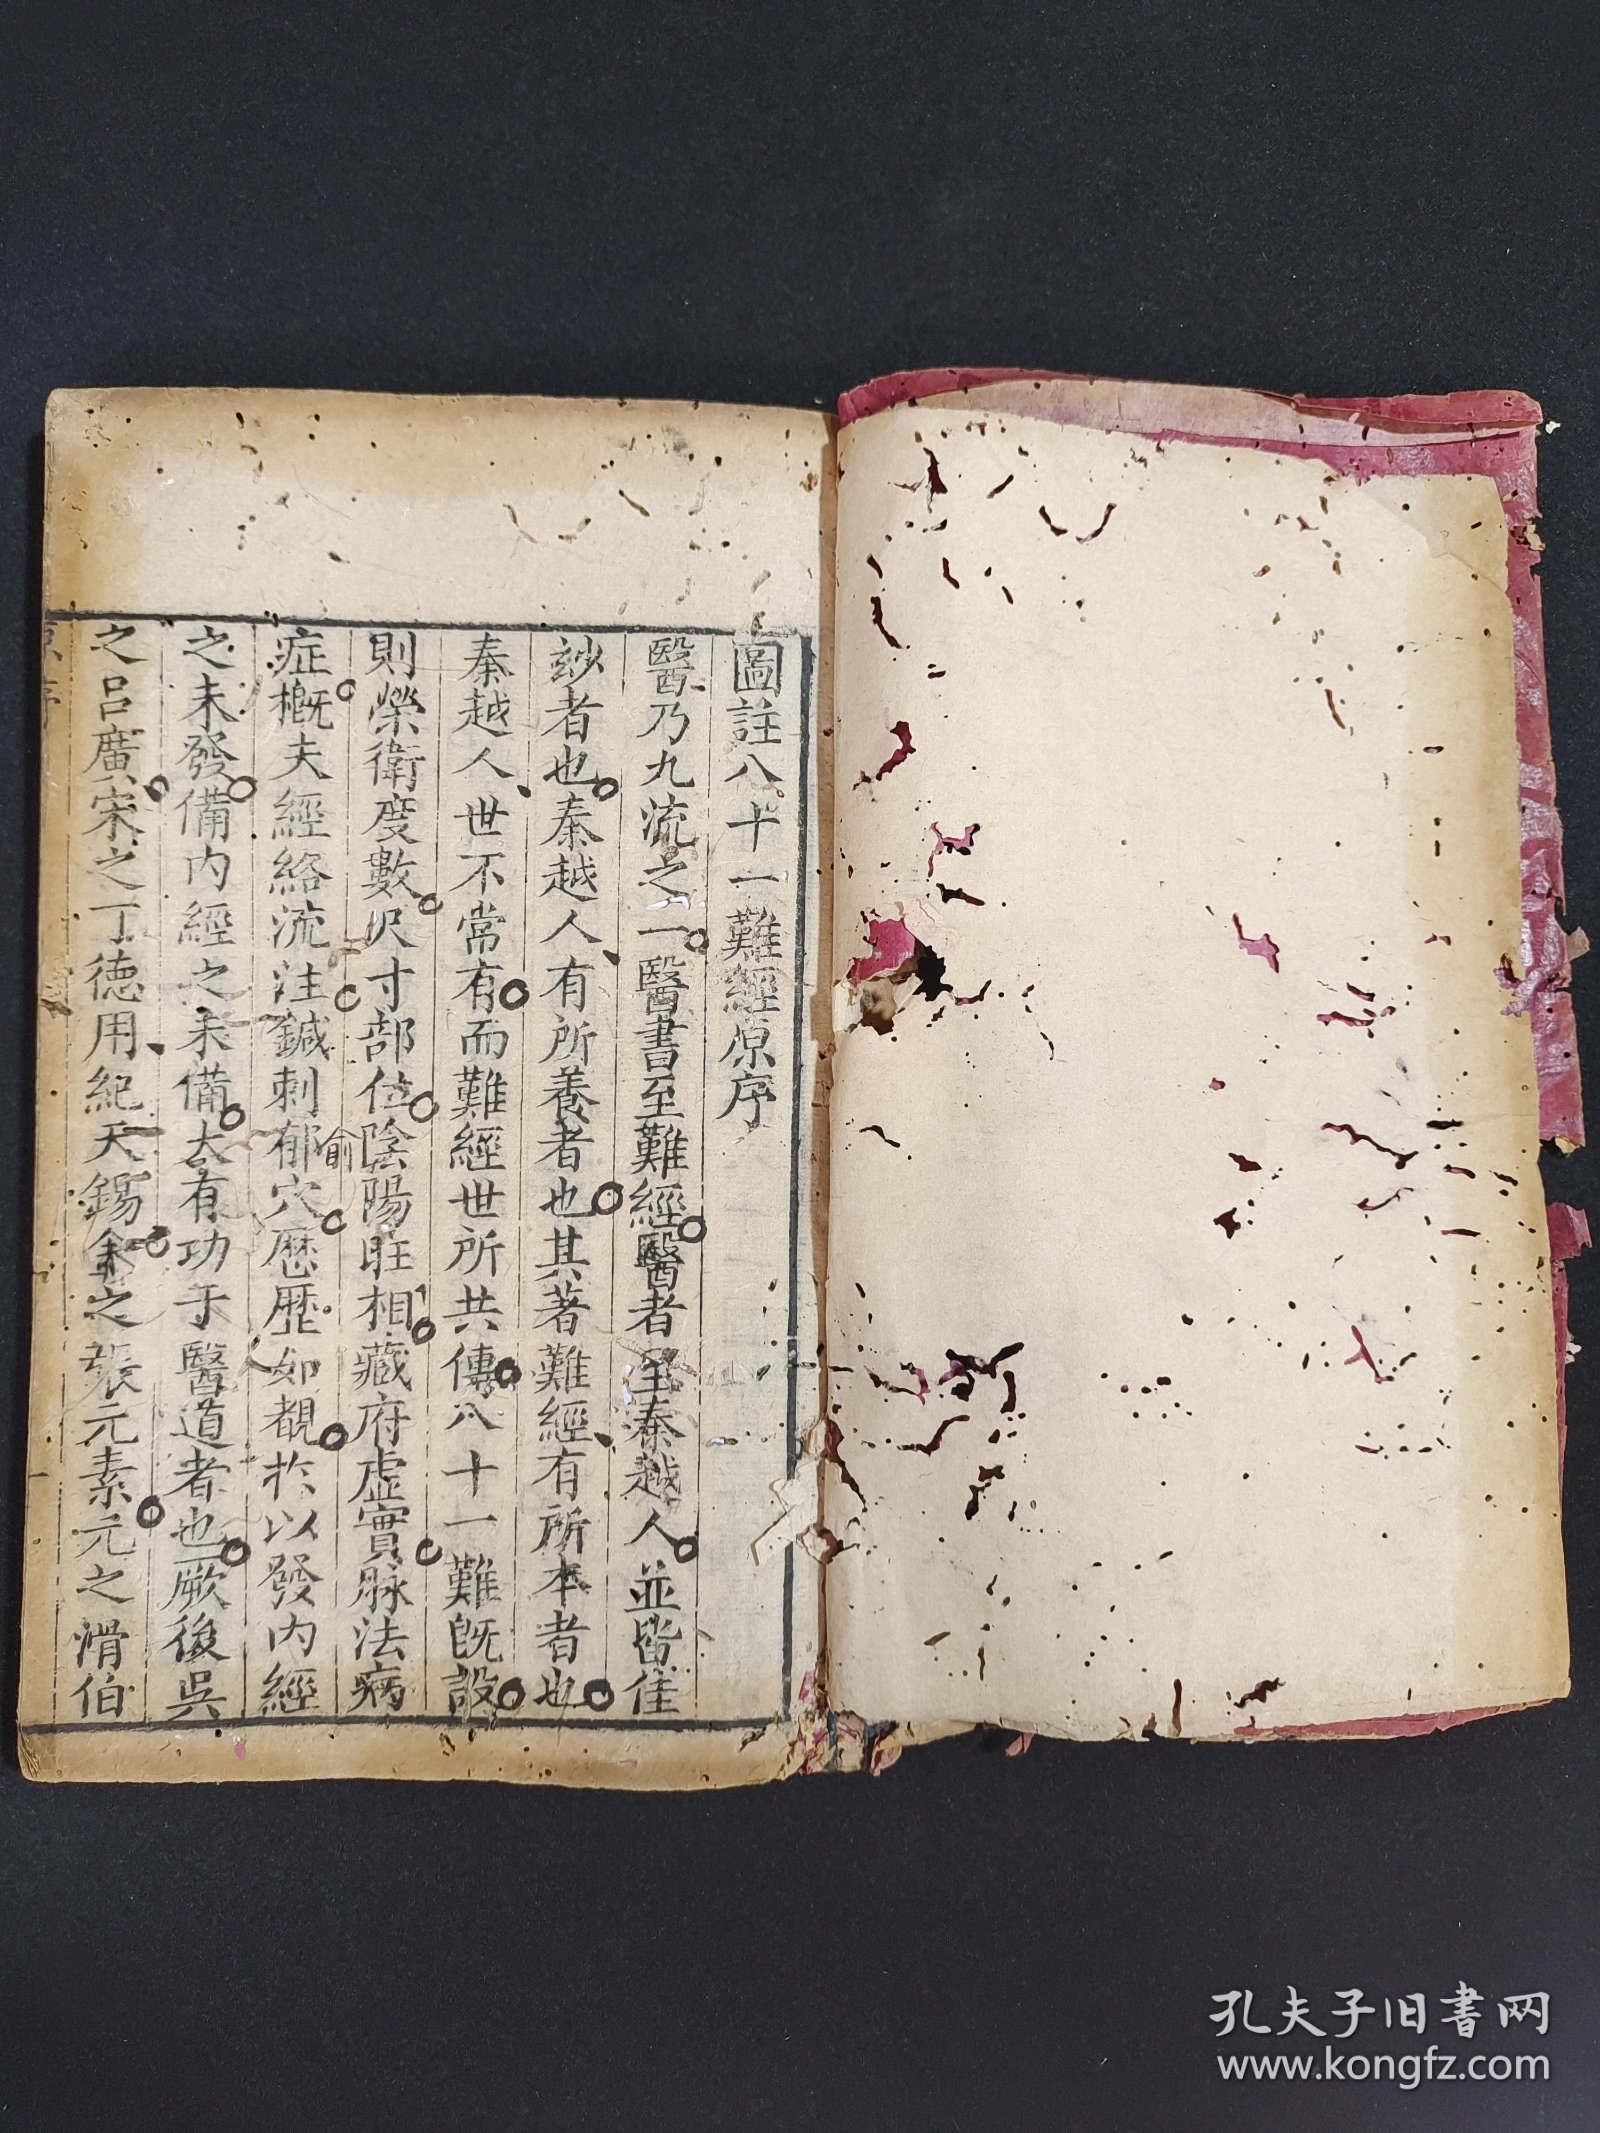 圖註八十一難經原序
醫乃九流之一醫書至難經醫者至秦越人並皆隹
玅者也秦越人有所養者也其著難經有所本者也
秦越人世不常有而難經世所共傳八十一難旣設
則榮衛度數尺寸部位陰陽旺相藏府虛實脉法病
症槪夫經絡流注鍼刺郁穴歷歷如覩於以發內經
俞
之未發備內經之未備大有功于醫道者也厥後吳
之呂廣宋之丁德用紀天錫金之張元素元之滑伯
孔夫子旧书网
www.kongfz.com